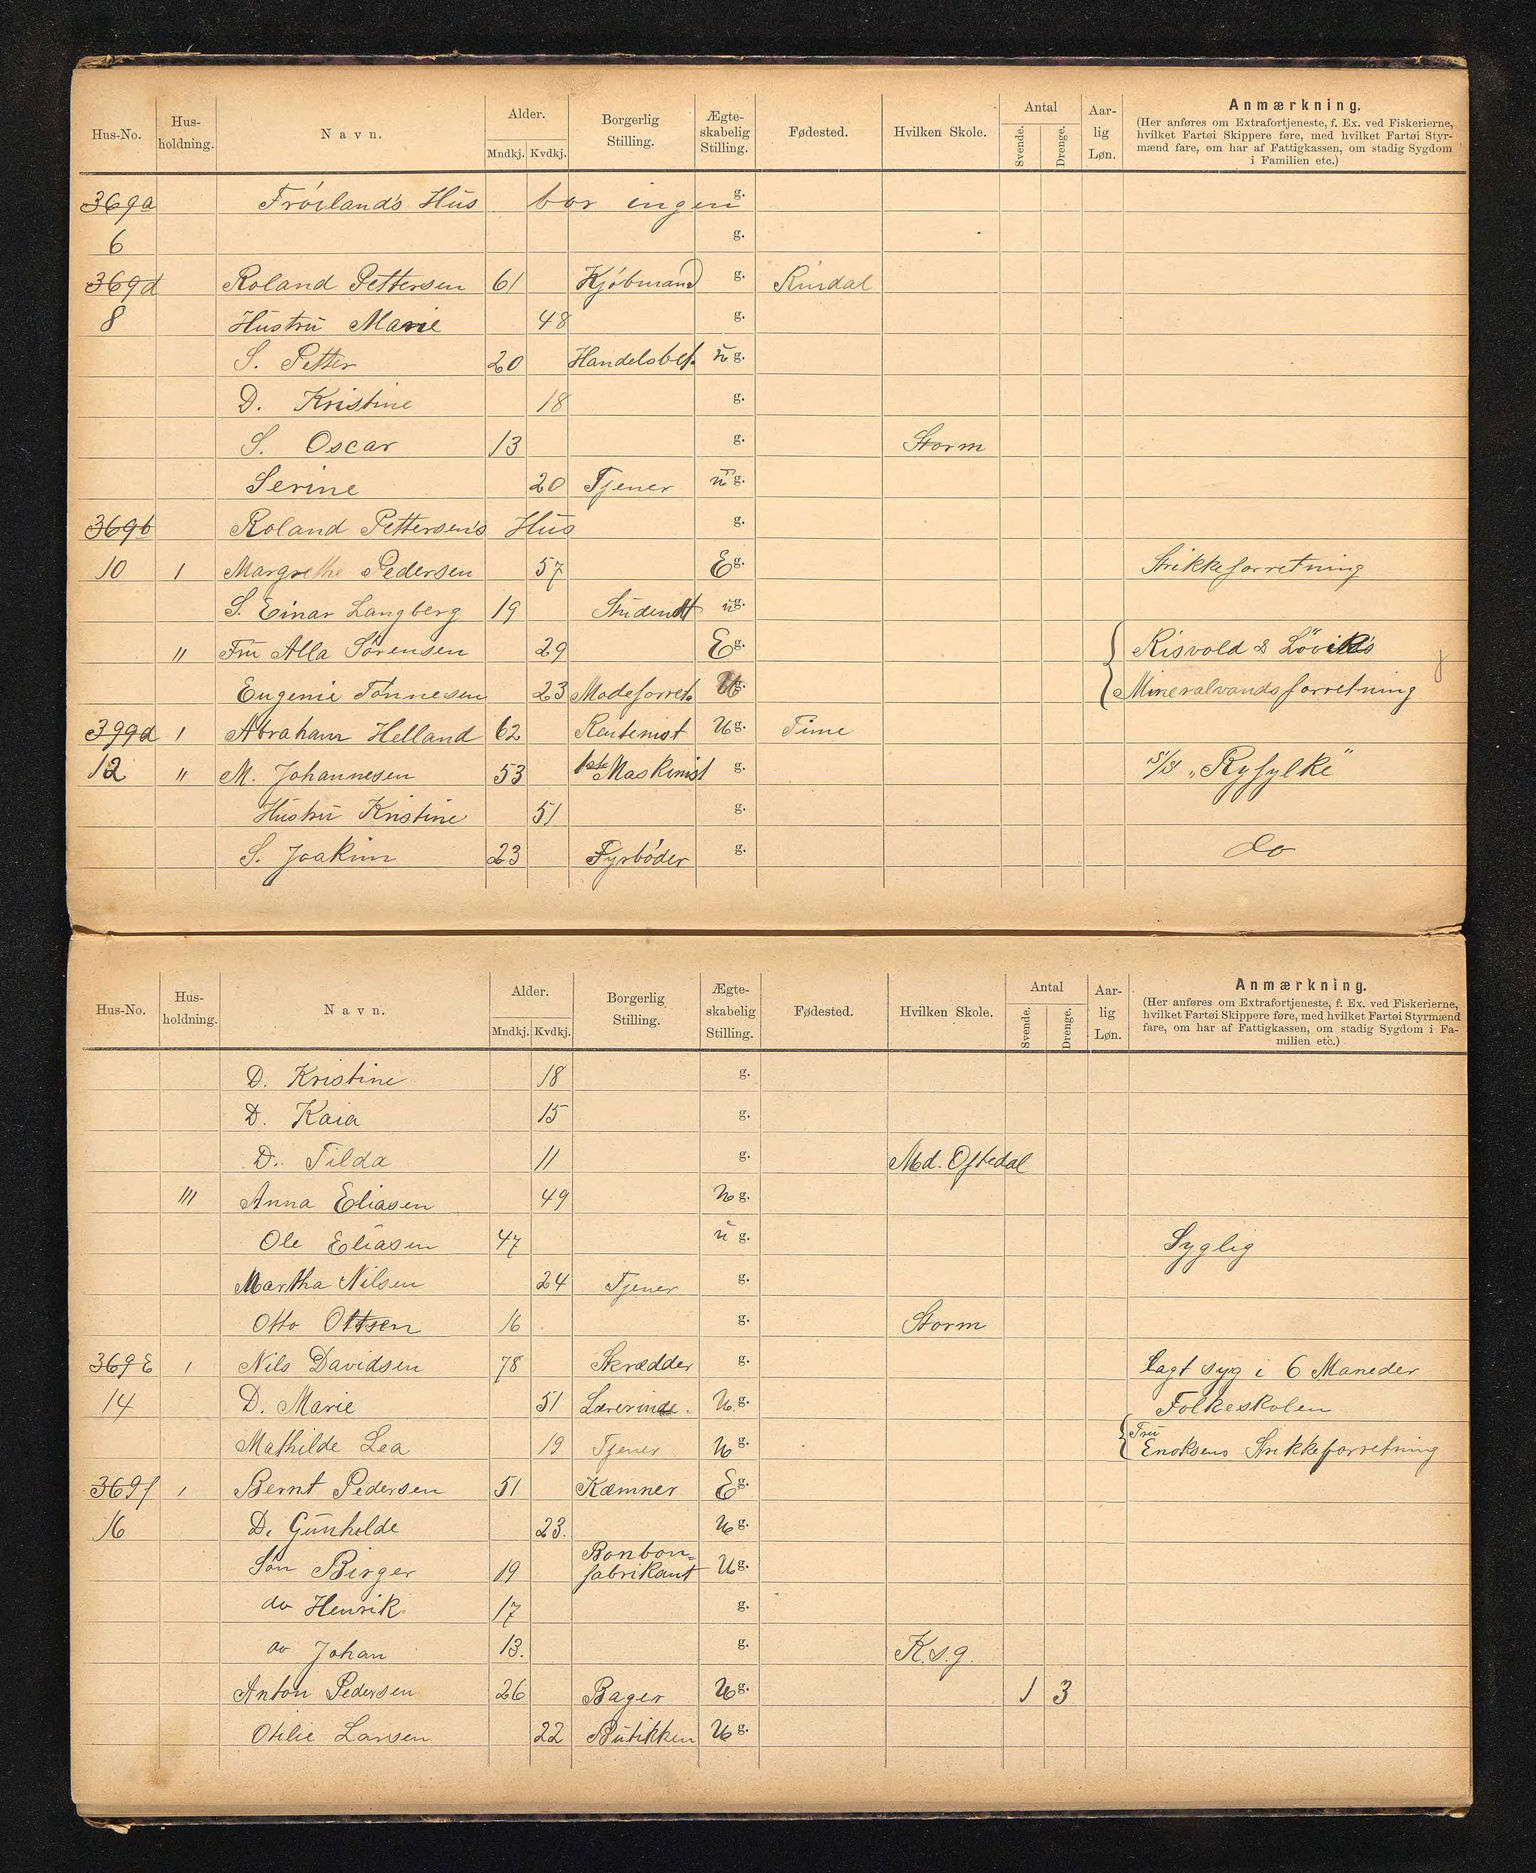 Hus-No. Hus-holdning. Navn. Alder. Mndkj. Kvdkj. Borgerlig Stilling. Ægte-skabelig Stilling. Fødested. Hvilken Skole. Antal Svende. Drenge. Aar-lig Løn. Anmærkning.
(Her anføres om Extrafortjeneste, f. Ex. ved Fiskerierne,
hvilket Fartøi Skippere føre, med hvilket Fartøi Styr-
mænd fare, om har af Fattigkassen, om stadig Sygdom
i Familien etc.)
369a Fröiland's Hus bor ingen g.
6 g.
369d Roland Pettersen 61 Kjöbmand g. Rindal
8 Hustru Marie 48 g.
S. Petter 20 Handelsbet. u g.
D. Kristine 18 g.
S. Oscar 13 g. Storm
Serine 20 Tjener u g.
369b Roland Pettersen's Hus g.
10 I Margrethe Pedersen 57 E g. Strikkeforretning
S. Einar Langberg 19 Student u g.
II Fru Alla Sörensen 29 E g. Risvold & Lövik's
Eugenie Tönnesen 23 Modeforret. U g. Mineralvandsforretning
399d I Abraham Helland 62 Rentenist U g. Time
12 II M. Johannesen 53 1ste Maskinist g. S/S „Ryfylke"
Hustru Kristine 51 g.
S. Joakim 23 Fyrböder g. do
Hus-No. Hus-holdning. Navn. Alder. Mndkj. Kvdkj. Borgerlig Stilling. Ægte-skabelig Stilling. Fødested. Hvilken Skole. Antal Svende. Drenge. Aar-lig Løn. Anmærkning.
(Her anføres om Extrafortjeneste, f. Ex. ved Fiskerierne,
hvilket Fartøi Skippere føre, med hvilket Fartøi Styrmænd
fare, om har af Fattigkassen, om stadig Sygdom i Fa-
milien etc.)
D. Kristine 18 g.
D. Kaia 15 g.
D. Tilda 11 g. Md. Oftedal
III Anna Eliasen 49 U g.
Ole Eliasen 47 u g. Syglig
Martha Nilsen 24 Tjener g.
Otto Ottsen 16 g. Storm
369E I Nils Davidsen 78 Skrædder g. Lagt syg i 6 Maneder
14 D. Marie 51 Lærerinde. U g. Folkeskolen
Mathilde Lea 19 Tjener U g. Fru Enoksens Strikkeforretning
369f I Bernt Pedersen 51 Kæmner E g.
16 D. Gunhilde 23. U g.
Sön Birger 19 Bonbon=fabrikant U g.
do Henrik 17 g.
do Johan 13. g. K.s.g.
Anton Pedersen 26 Bager U g. 1 3
Otilie Larsen 22 Butikken U g.